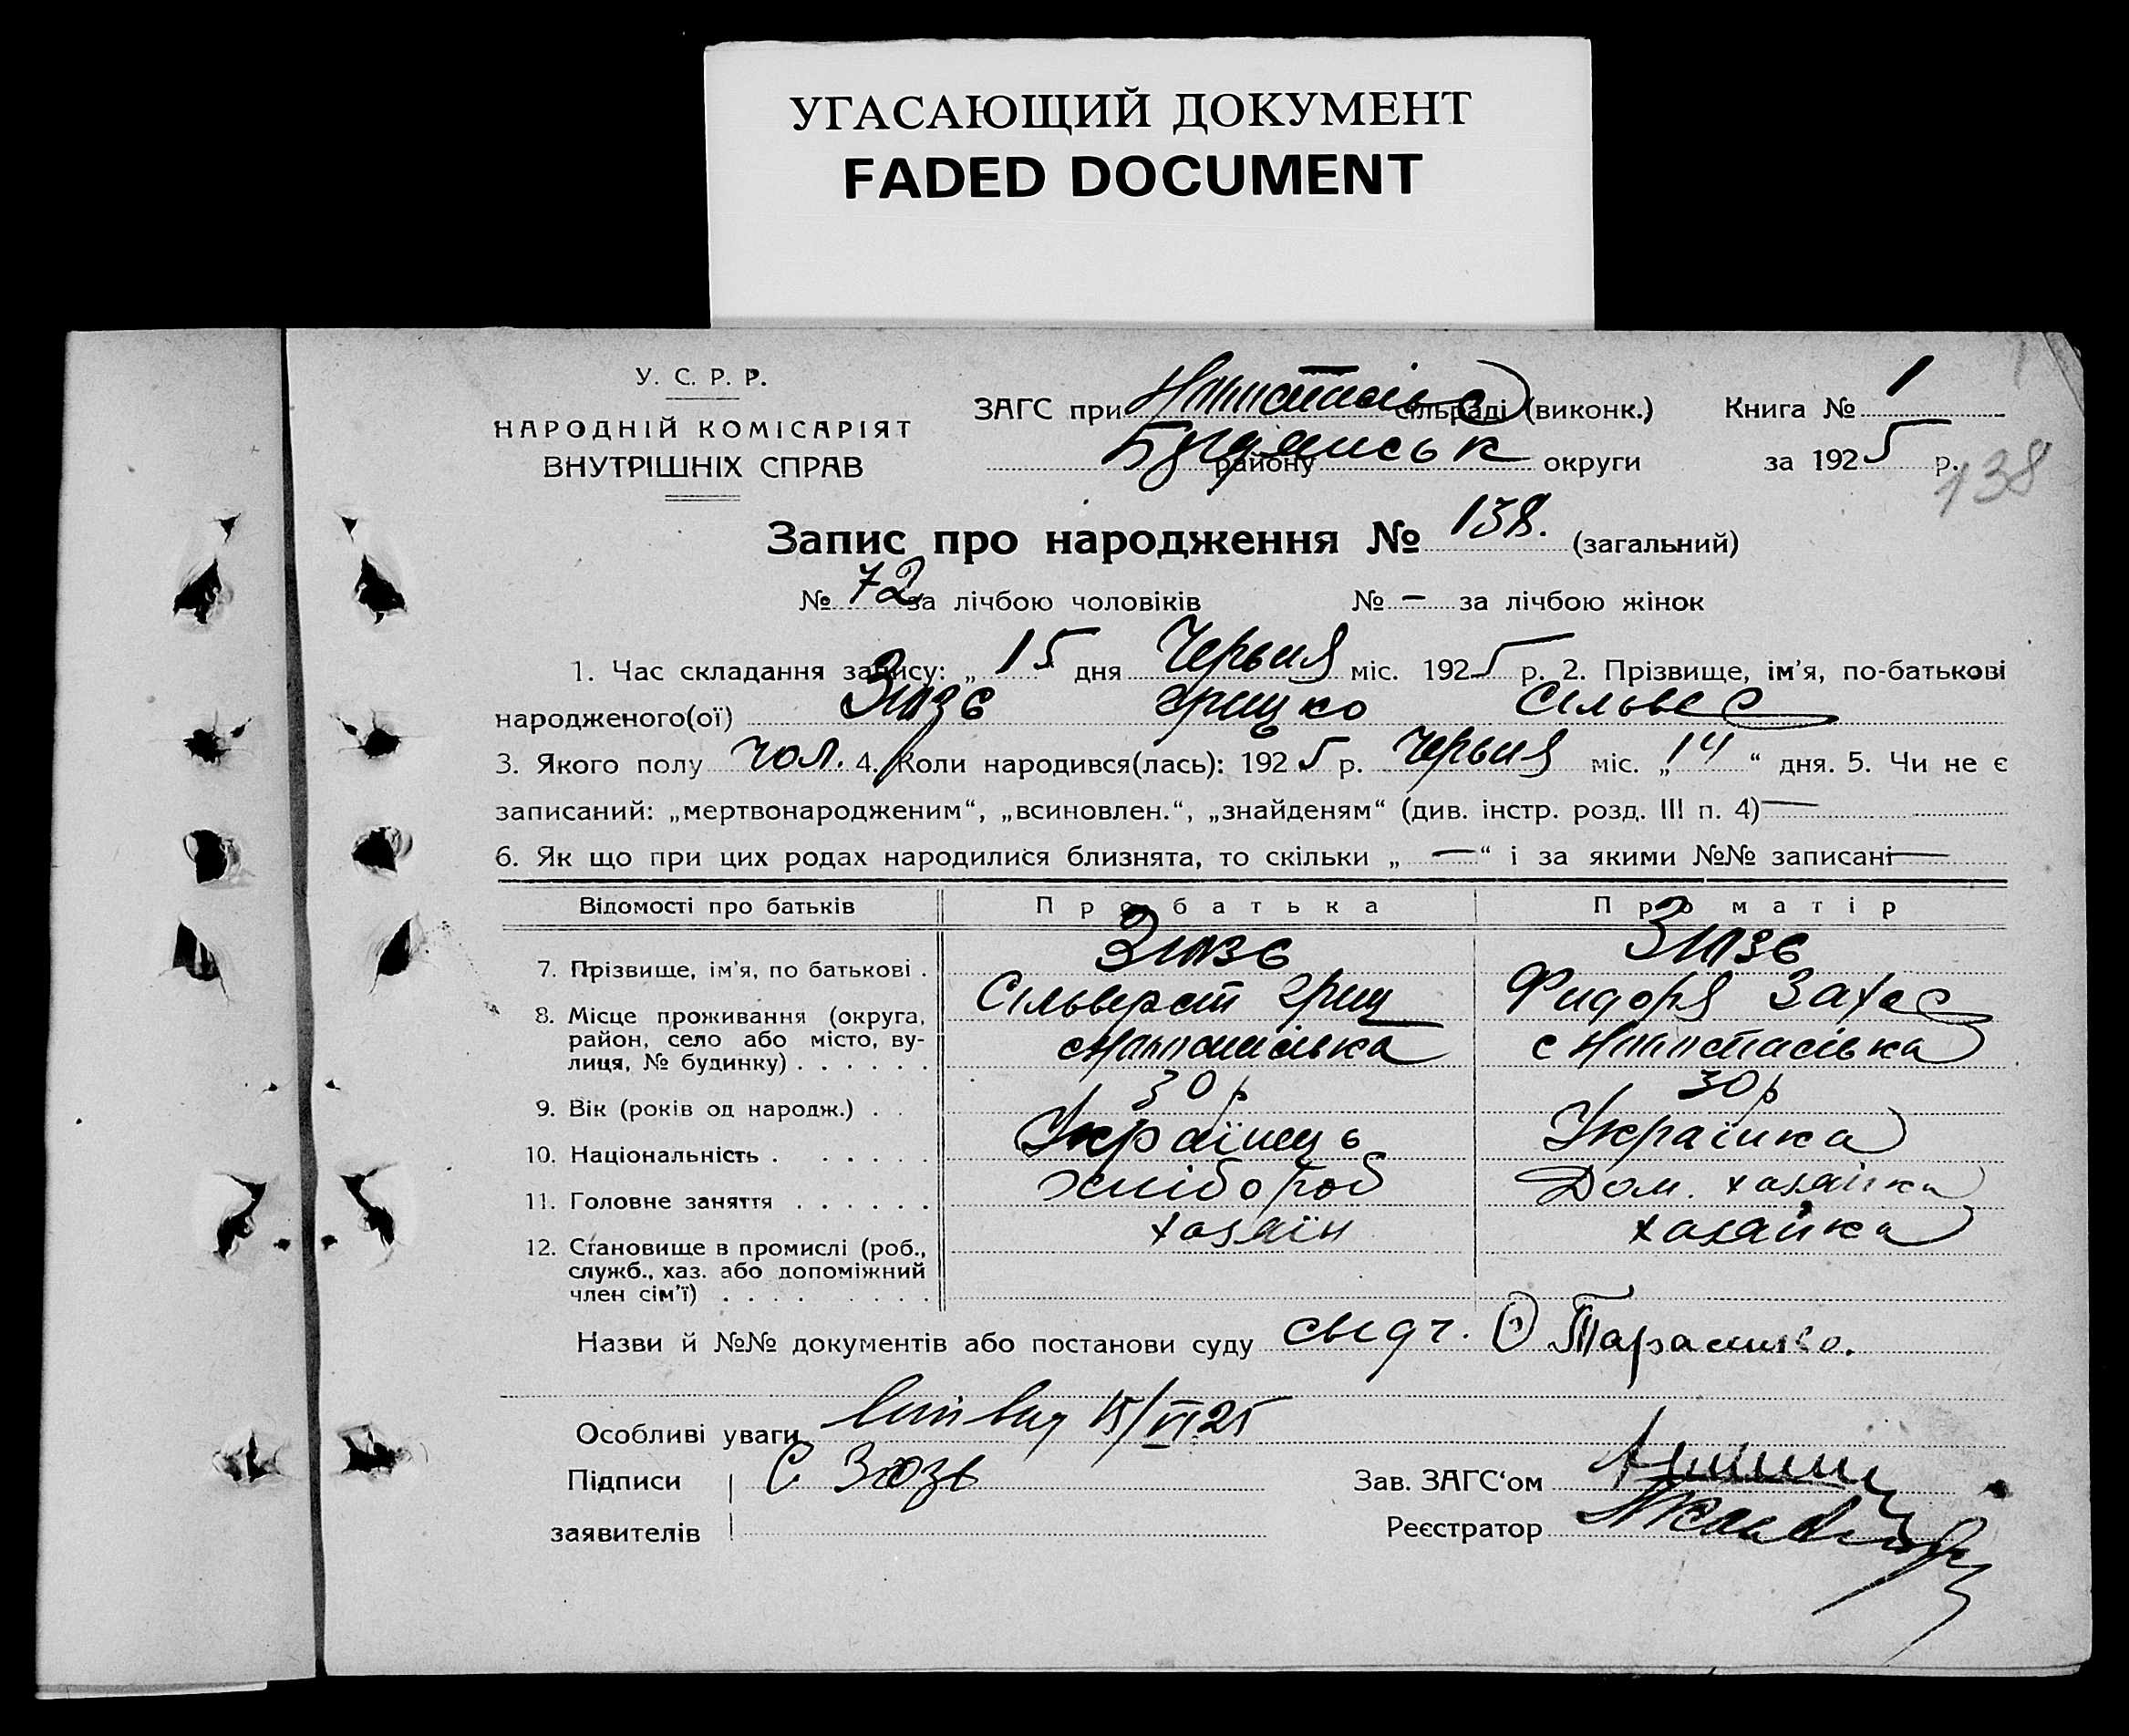 УГАСАЮЩИЙ ДОКУМЕНТ
FADED DOCUMENT
У. С. Р. Р.
НАРОДНІЙ КОМІСАРІЯТ
ВНУТРІШНІХ СПРАВ
ЗАГС при сільраді (виконк.)
району округи
Книга № 1
за 1925 р.
138
Запис про народження № 138. (загальний)
№ 72 за лічбою чоловіків № — за лічбою жінок
1. Час складання запису: „ 15 дня Червня міс. 1925 р. 2. Прізвище, ім'я, по-батькові
народженого(ої) Зюзє Грицко Сільвес
3. Якого полу чол. 4. Коли народився(лась): 1925 р. Червня міс. „ 14 “ дня. 5. Чи не є
записаний: „мертвонародженим“, „всиновлен.“, „знайденям“ (див. інстр. розд. III п. 4) —
6. Як що при цих родах народилися близнята, то скільки „ — “ і за якими №№ записані —
Відомості про батьків Про батька Про матір
7. Прізвище, ім'я, по батькові . Зюзє Зюзє
Сільверст Гриц Фидоря Захас
8. Місце проживання (округа,
район, село або місто, ву-
лиця, № будинку) . . . . . .
9. Вік (років од народж.) . . 30 р 30 р
10. Національність . . . . . . Українець Українка
11. Головне заняття . . . . . . хлібороб Дом. хазяйка
12. Становище в промислі (роб.,
служб., хаз. або допоміжний
член сім'ї) . . . . . . . . хазяїн хазяйка
Назви й №№ документів або постанови суду свідч.
Особливі уваги 15/VI 25
Підписи С Зюзь Зав. ЗАГС'ом
заявителів Реєстратор